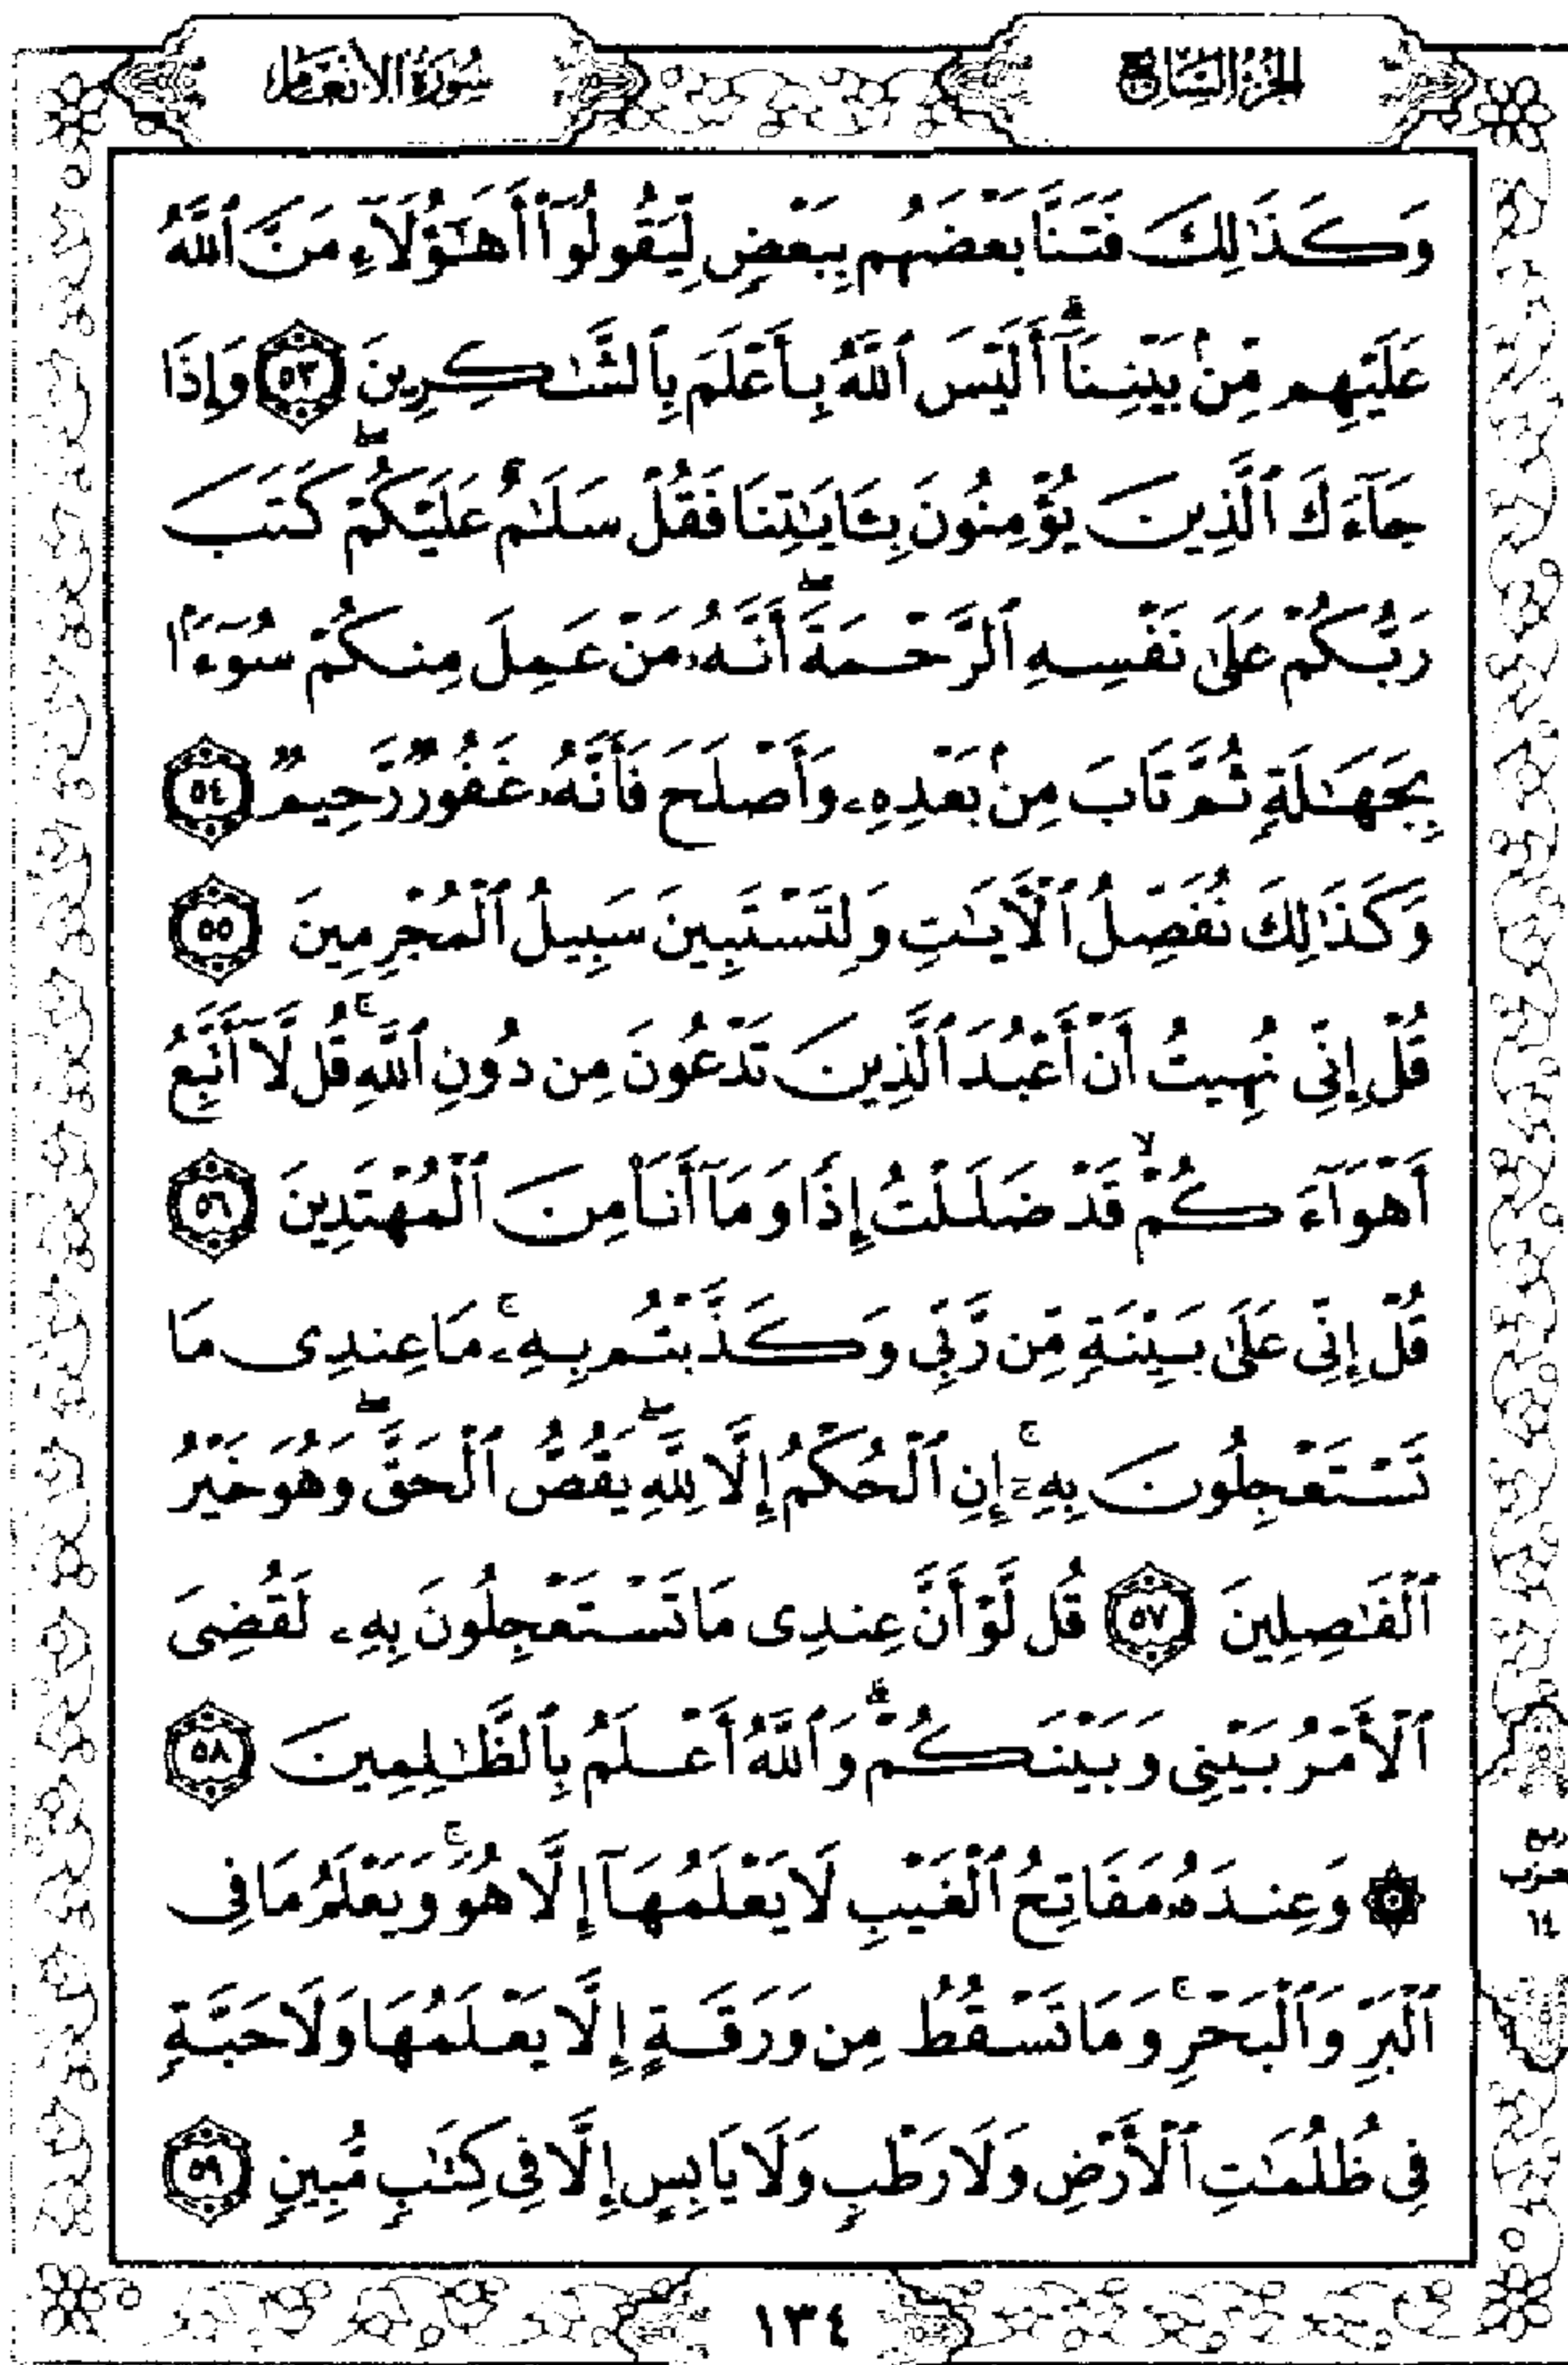 الجزء السابع
سورة الأنعام
وَكَذَٰلِكَ فَتَنَّا بَعْضَهُم بِبَعْضٍ لِّيَقُولُوٓا۟ أَهَـٰٓؤُلَآءِ مَنَّ ٱللَّهُ
عَلَيْهِم مِّنۢ بَيْنِنَآ ۗ أَلَيْسَ ٱللَّهُ بِأَعْلَمَ بِٱلشَّـٰكِرِينَ ٥٣ وَإِذَا
جَآءَكَ ٱلَّذِينَ يُؤْمِنُونَ بِـَٔايَـٰتِنَا فَقُلْ سَلَـٰمٌ عَلَيْكُمْ ۖ كَتَبَ
رَبُّكُمْ عَلَىٰ نَفْسِهِ ٱلرَّحْمَةَ ۖ أَنَّهُۥ مَنْ عَمِلَ مِنكُمْ سُوٓءًۢا
بِجَهَـٰلَةٍ ثُمَّ تَابَ مِنۢ بَعْدِهِۦ وَأَصْلَحَ فَأَنَّهُۥ غَفُورٌ رَّحِيمٌ ٥٤
وَكَذَٰلِكَ نُفَصِّلُ ٱلْـَٔايَـٰتِ وَلِتَسْتَبِينَ سَبِيلُ ٱلْمُجْرِمِينَ ٥٥
قُلْ إِنِّى نُهِيتُ أَنْ أَعْبُدَ ٱلَّذِينَ تَدْعُونَ مِن دُونِ ٱللَّهِ ۚ قُل لَّآ أَتَّبِعُ
أَهْوَآءَكُمْ ۙ قَدْ ضَلَلْتُ إِذًا وَمَآ أَنَا۠ مِنَ ٱلْمُهْتَدِينَ ٥٦
قُلْ إِنِّى عَلَىٰ بَيِّنَةٍ مِّن رَّبِّى وَكَذَّبْتُم بِهِۦ ۚ مَا عِندِى مَا
تَسْتَعْجِلُونَ بِهِۦٓ ۚ إِنِ ٱلْحُكْمُ إِلَّا لِلَّهِ ۖ يَقُصُّ ٱلْحَقَّ ۖ وَهُوَ خَيْرُ
ٱلْفَـٰصِلِينَ ٥٧ قُل لَّوْ أَنَّ عِندِى مَا تَسْتَعْجِلُونَ بِهِۦ لَقُضِىَ
ٱلْأَمْرُ بَيْنِى وَبَيْنَكُمْ ۗ وَٱللَّهُ أَعْلَمُ بِٱلظَّـٰلِمِينَ ٥٨
۞ وَعِندَهُۥ مَفَاتِحُ ٱلْغَيْبِ لَا يَعْلَمُهَآ إِلَّا هُوَ ۚ وَيَعْلَمُ مَا فِى
ٱلْبَرِّ وَٱلْبَحْرِ ۚ وَمَا تَسْقُطُ مِن وَرَقَةٍ إِلَّا يَعْلَمُهَا وَلَا حَبَّةٍ
فِى ظُلُمَـٰتِ ٱلْأَرْضِ وَلَا رَطْبٍ وَلَا يَابِسٍ إِلَّا فِى كِتَـٰبٍ مُّبِينٍ ٥٩
ربع
حزب
١٤
١٣٤